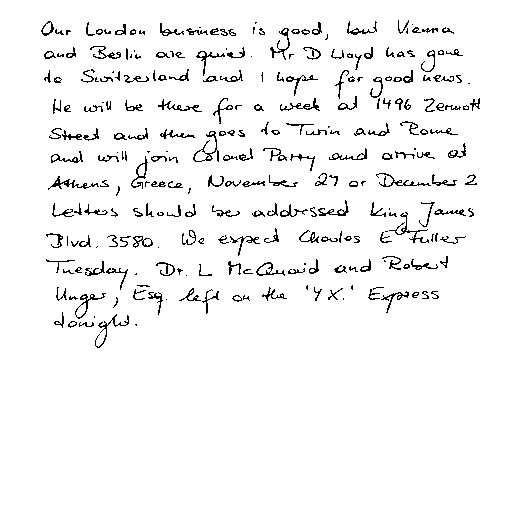 Our London business is good, but Vienna
and Berlin are quiet. Mr D Lloyd has gone
to Switzerland and I hope for good news.
He will be there for a week at 1496 Zermott
Street and then goes to Turin and Rome
and will join Colonel Parry and arrive at
Athens, Greece, November 27 or December 2
Letters should be addressed King James
Blvd. 3580. We expect Charles E Fuller
Tuesday. Dr. L McQuaid and Robert
Unger, Esq. left on the 'Y X.' Express
tonight.